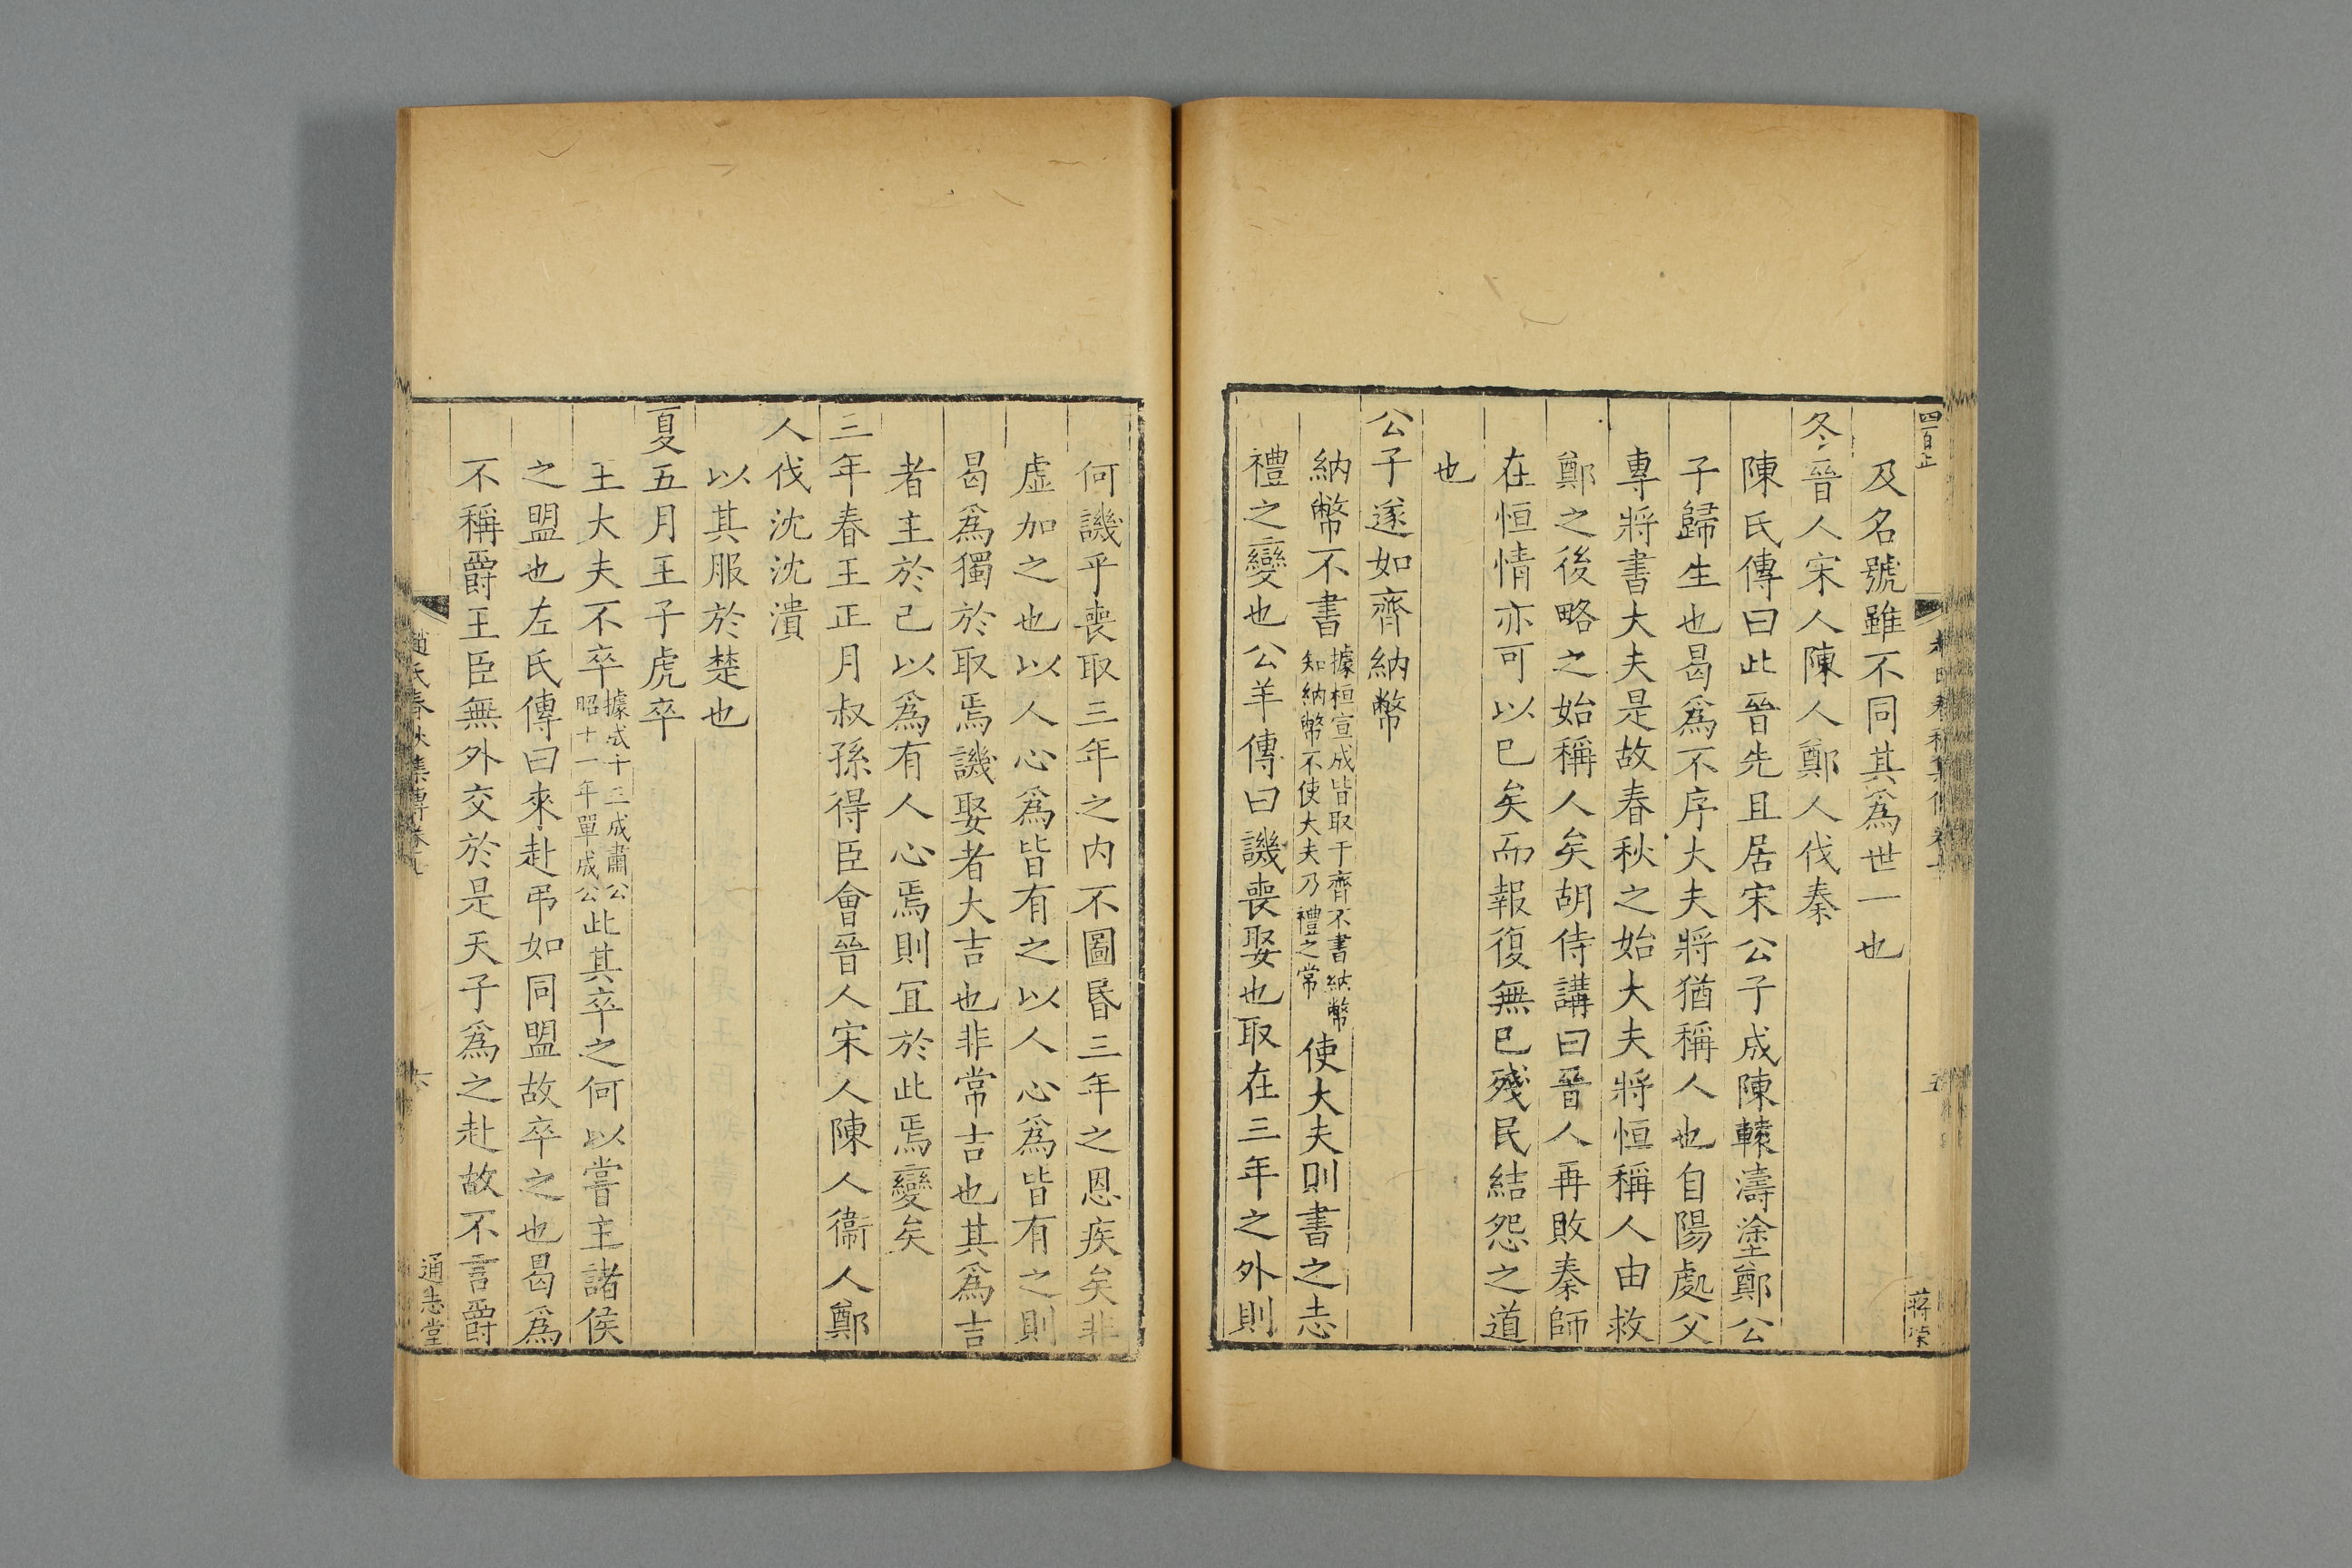 及名號雖不同其爲世一也
冬晉人宋人陳人鄭人伐秦
陳氏傳曰此晉先且居宋公子成陳轅濤塗鄭公
子歸生也曷爲不序大夫將猶稱人也自陽處父
專將書大夫是故春秋之始大夫將恒稱人由救
鄭之後略之始稱人矣胡侍講曰晉人再敗秦師
在恒情亦可以已矣而報復無已殘民結怨之道
也
公子遂如齊納幣
納幣不書據桓宣成皆取于齊不書納幣知納幣不使大夫乃禮之常使大夫則書之志
禮之變也公羊傳曰譏喪娶也取在三年之外則
蒋荣
何譏乎喪取三年之内不圖昬三年之恩疾矣非
虛加之也以人心爲皆有之以人心爲皆有之則
曷爲獨於取焉譏娶者大吉也非常吉也其爲吉
者主於己以爲有人心焉則冝於此焉變矣
三年春王正月叔孫得臣會晉人宋人陳人衞人鄭
人伐沈沈潰
以其服於楚也
夏五月王子虎卒
王大夫不卒據成十三成肅公昭十一年單成公此其卒之何以嘗主諸侯
之盟也左氏傳曰來赴弔如同盟故卒之也曷爲
不稱爵王臣無外交於是天子爲之赴故不言爵
趙氏春秋集傳卷
六
通志堂